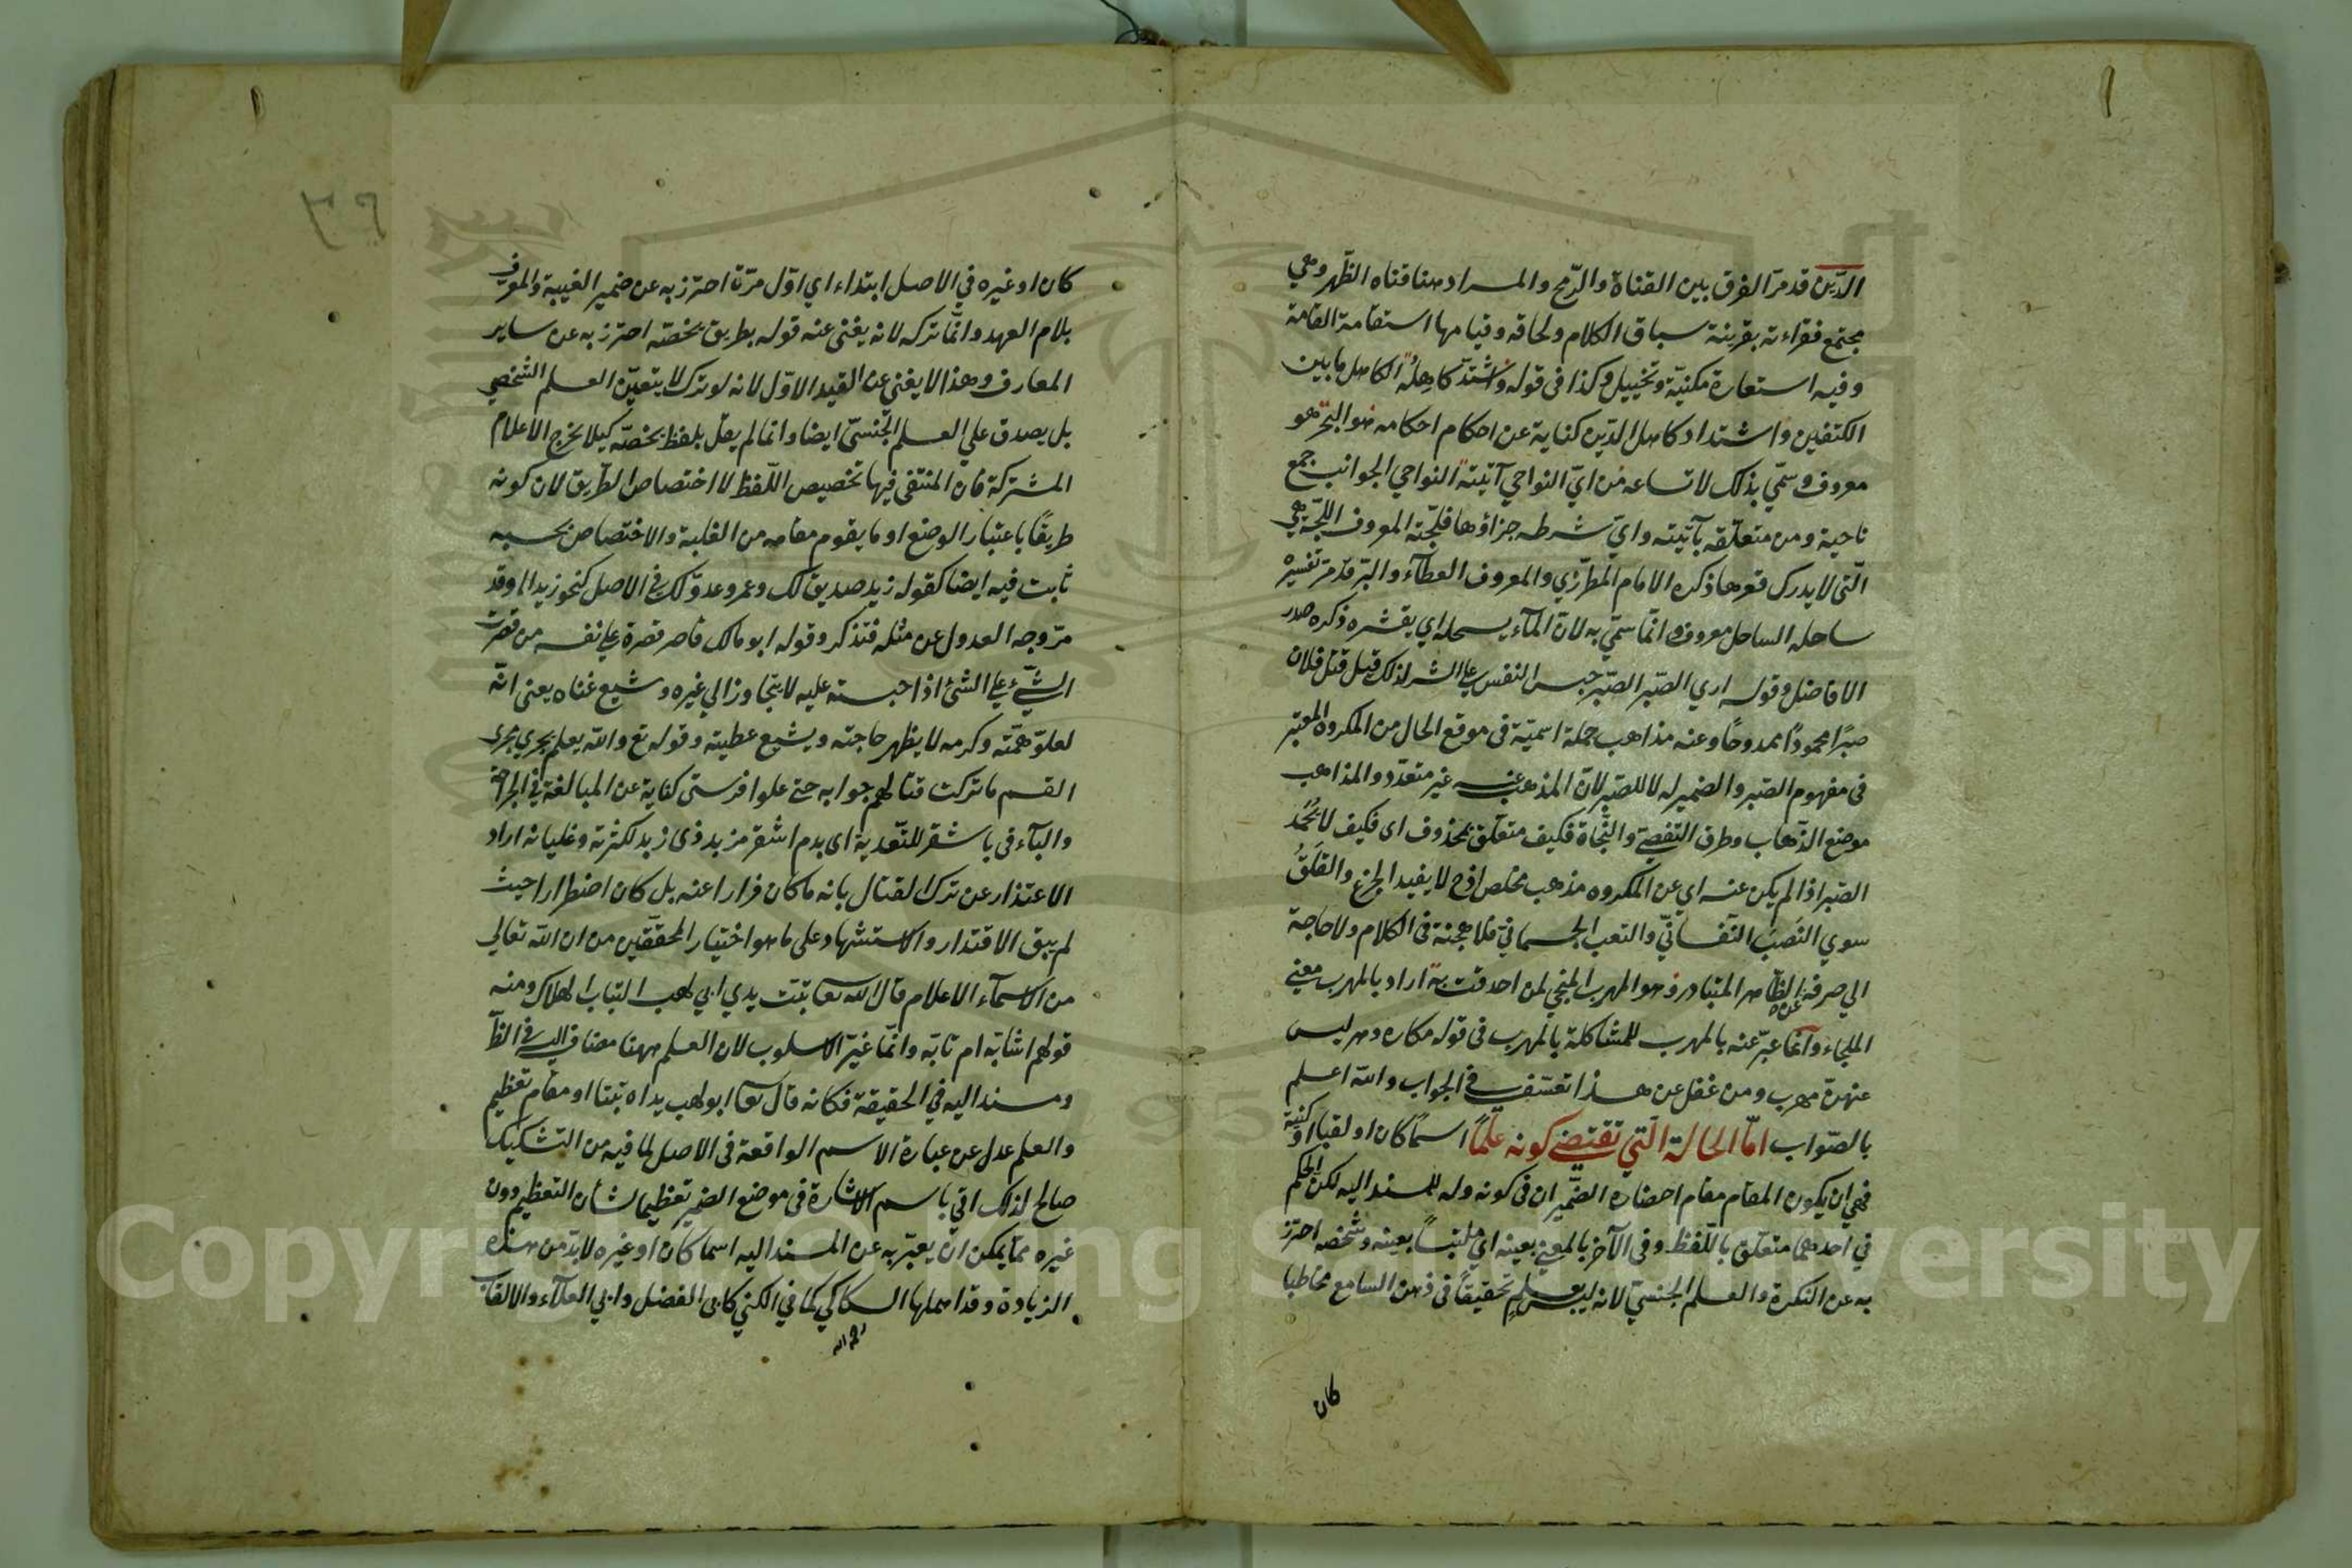 الدّين قد مرّ الفرق بين القناة والرّمح والمراد هنا قناه الظّهر وهي
مجتمع فقراته بقرينة سباق الكلام ولحاقه وقيامها استقامة القامة
وفيه استعارة مكنيّة وتخييل وكذا في قوله واشتدّ كاهله الكاهل ما بين
الكتفين واشتداد كاهل الدّين كناية عن احكام احكامه هو البحر هو
معروف وسمّي بذلك لاتساعه من ايّ النواحي آتيته النواحي الجوانب جمع
ناحية ومن متعلّقه بآتيته وايّ شرطه جزاؤها فلجّته المعروف اللجّة هي
الّتي لا يدرك قعرها ذكره الامام المطرّزي والمعروف العطآء والبرّ قد مرّ تفسيره
ساحله الساحل معروف وانّما سمّي به لانّ المآء يسحله اي يقشره ذكره صدر
الافاضل وقوله اري الصّبر الصّبر حبس النفس على الشر لذلك قيل قتل فلان
صبرًا محمودًا ممدوحًا وعنه مذاهب جملة اسميّة في موقع الحال من المكروه المعتبر
في مفهوم الصّبر والضمير له لا للصّبر لانّ المذهب عنه غير متعدّد والمذاهب
موضع الذّهاب وطرق التفصّي والنّجاة فكيف متعلّق بمحذوف اي فكيف لا يُحمَدُ
الصّبر اذا لم يكن عنه اي عن المكروه مذهب مخلص اذح لا يفيد الجزع والقلقُ
سوي النّصَب النّفسانّي والتعب الجسمانيّ فلا هجنة في الكلام ولا حاجة
الي صرفه عن الظّاهر المتبادر وهو المهرب المنجي لمن احدقت به اراد بالمهرب معني
الملجاء وانّما عبّر عنه بالمهرب للمشاكلة بالمهرب في قوله مكاره دهر ليس
عنهنّ مهرب ومن غفل عن هذا تعسّف في الجواب والله اعلم
بالصّواب امّا الحالة الّتي تقتضي كونه علمًا اسمًا كان او لقبا او كنية
فهي ان يكون المقام مقام احضاره الضّميران في كونه وله للمسند اليه لكن الحكم
في احدهما متعلّق باللّفظ وفي الآخر بالمعني بعينه اي ملتبسًا بعينه وشخصه احترز
به عن النكرة والعلم الجنسيّ لانه ليس بعلمٍ تحقيقًا في ذهن السامع مخاطبا
كان
كان او غيره في الاصل ابتداء اي اوّل مرّة احترز به عن ضمير الغيبة والمعرف
بلام العهد وانّما تركه لانه يغني عنه قوله بطريق يخصّه احترز به عن ساير
المعارف وهذا لا يغني عن القيد الاوّل لانه لو ترك لا يتعيّن العلم الشخصي
بل يصدق علي العلم الجنسيّ ايضا وانما لم يقل بلفظ يخصّه كيلا يخرج الاعلام
المشتركة فان المنتفي فيها تخصيص اللّفظ لا اختصاص الطّريق لان كونه
طريقًا باعتبار الوضع او ما يقوم مقامه من الغلبة والاختصاص بحسبه
ثابت فيه ايضا كقوله زيد صديق لك وعمرو عدوّ لك في الاصل كنحو زيد الموقد
مرّ وجه العدول عن مثله فتذكر وقوله ابو مالك قاصر قصرة علي نفسه من قصرت
الشّيء علي الشئ اذا حبسته عليه لا يتجاوز الي غيره وشيع غناه يعني انّه
لعلوّ همّته وكرمه لا يظهر حاجته ويشيع عطيته وقوله تع والله يعلم يجري مجري
القسم ما تركت قتالهم جوابه حتى علوا فرسي كناية عن المبالغة في الجراحة
والبآء في باشقر للتّعدية اي بدم اشقر مزبد ذي زبد لكثرته وغليانه اراد
الاعتذار عن ترك القتال بانه ما كان فرارا عنه بل كان اضطرارا حيث
لم يبق الاقتدار والاستشهاد علي ما هو اختيار المحقّقين من ان الله تعالي
من الاسمآء الاعلام قال الله تعا تبّت يدي ابي لهب التباب الهلاك ومنه
قولهم اشابّة ام تابّة وانّما غيّر الاسلوب لان العلم ههنا مضاف اليه في الظّا
ومسند اليه في الحقيقة فكانه قال تعا ابو لهب يداه تبّتا او مقام تعظيم
والعلم عدل عن عبارة الاسم الواقعة في الاصل لما فيه من التشكيك
صالح لذلك اتي باسم الاشارة في موضع الضمير تعظيما لشان التعظيم دون
غيره ممّا يمكن ان يعبّر به عن المسند اليه اسما كان او غيره لا بدّ من هذه
الزيادة وقد اهملها السكاكي كما في الكني كابي الفضل وابي العلآء والالقاب
رحمه الله
Copyright © King Saud University